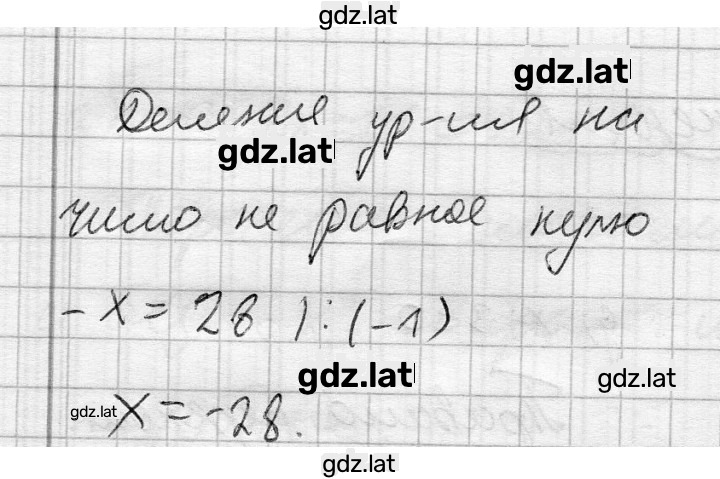 gdz.lat
gdz.lat
Деление ур-ия на
gdz.lat
число не равное нулю
-x = 28 | : (-1)
gdz.lat
gdz.lat
gdz.lat
x = -28.
gdz.lat